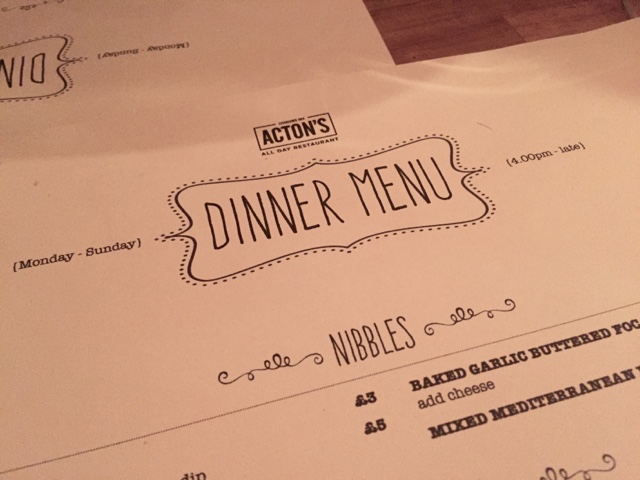 {Monday - Sunday}
ACTON'S
ALL DAY RESTAURANT
DINNER MENU
{Monday - Sunday}
{4.00pm - late}
NIBBLES
£3
BAKED GARLIC BUTTERED FOC
add cheese
£5
MIXED MEDITERRANEAN
dip